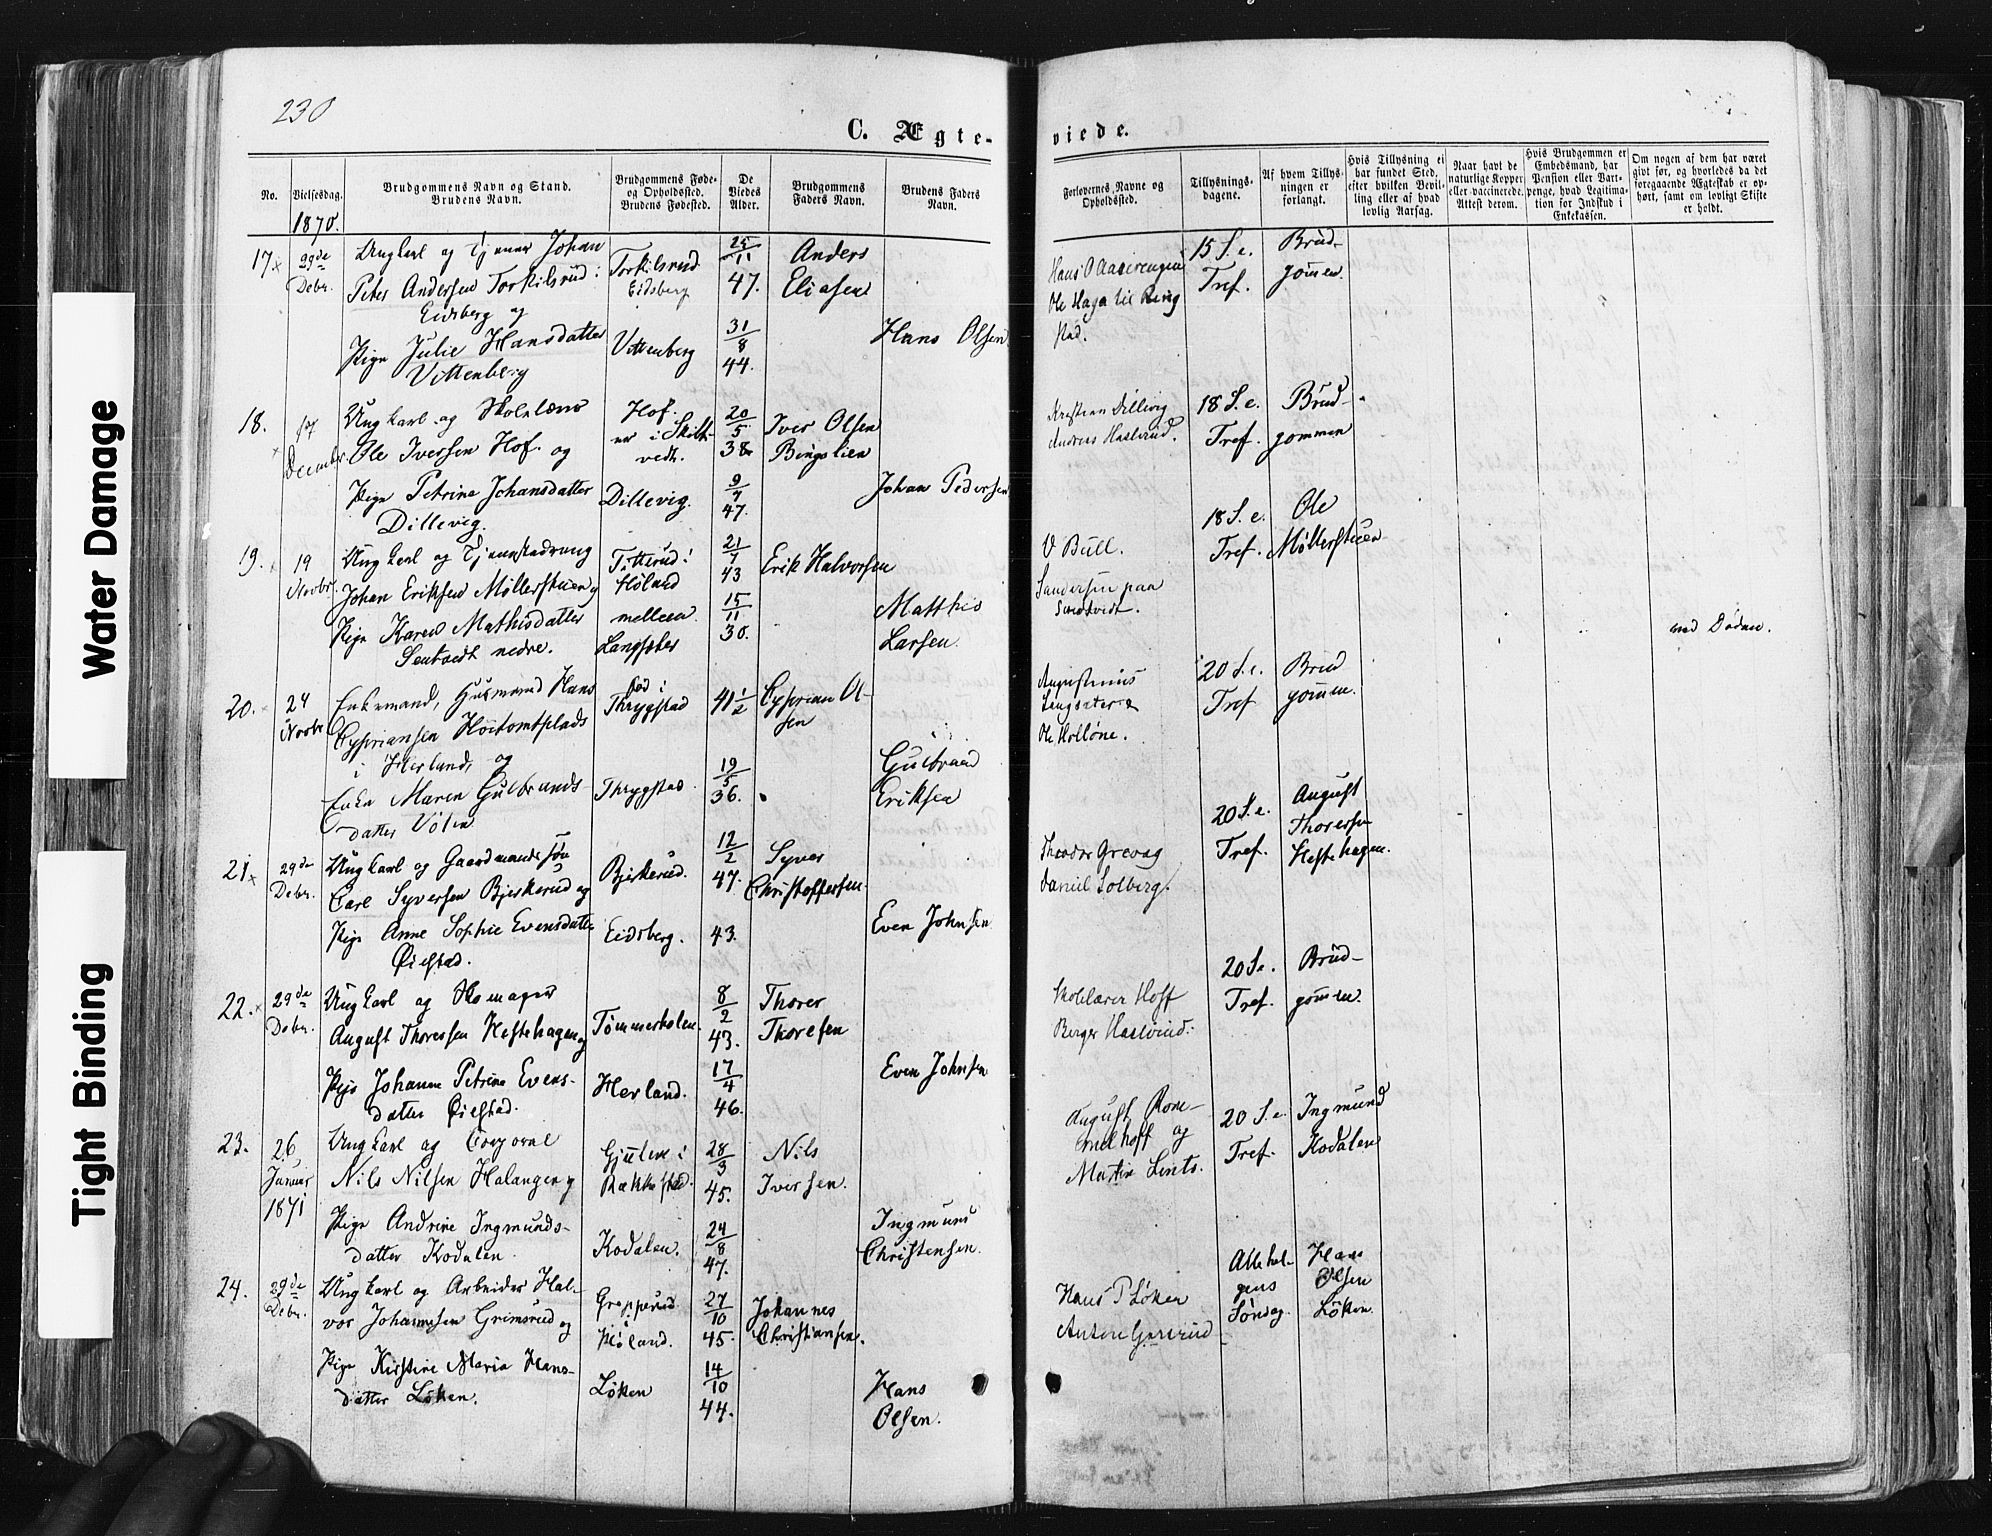 230
C. Ægte-
viede.
No.
Vielsesdag.
Brudgommens Navn og Stand.
Brudens Navn.
Brudgommens Føde-
og Opholdsted.
Brudens Fødested.
De
Viedes
Alder.
Brudgommens
Faders Navn.
Brudens Faders
Navn.
Forlovernes, Navne og
Opholdsted.
Tillysnings-
dagene.
Af hvem Tillys-
ningen er
forlangt.
Hvis Tillysning ei
har fundet Sted,
efter hvilken Bevil-
ling eller af hvad
lovlig Aarsag.
Naar havt de
naturlige Kopper
eller vaccinerede.
Attest derom.
Hvis Brudgommen er
Embedsmand, har
Pension eller Vart-
penge, hvad Legitima-
tion for Indskud i
Enkekassen.
Om nogen af dem har været
gift før, og hvorledes da det
foregaaende Ægteskab er op-
hørt, samt om lovligt Skifte
er holdt.
1870.
17 29de Debr.
Ungkarl og Tjener Johan
Peter Andersen Torkilsrud i
Eidsberg og
Pige Julie Hansdatter
Vittenberg
Torkilsrud
Eidsberg
Vittenberg
25/11 47.
31/8 44.
Anders
Eliasen
Hans Olsen
Hans O Aaserengen
Ole Haga til Ring
stad.
15 S. e.
Tref.
Brud-
gommen.
18. 17 December
Ungkarl og Skolelærer
Ole Iversen Hof. og
Pige Petrine Johansdatter
Dillevig.
Hof.
er i Skibt-
vedt.
Dillevig.
20/5 38
9/7 47.
Iver Olsen
Bingslien
Johan Pedersen
Kristian Dillevig
Andreas Haslerud.
18 S. e.
Tref.
Brud-
gommen
19. 19 Novbr.
Ungkarl og
Johan Eriksen Møllerstuen og
Pige Karen Mathisdatter
Sentvedt nedre.
Titterud i
Høland
mellem
Langsæter
21/7 43
15/11 30.
Erik Halvorsen
Matthis
Larsen.
V Bull.
Sandersen paa
18 S. e.
Tref.
Ole
Møllerstuen
ved Døden.
20. 24 Novbr
Enkemand, Husmand Hans
Cypriansen Hoitomtplads
i Herland, og
Enke Maren Gulbrands
datter Volen
Fød i
Thrygstad
Thrygstad
41 1/2
19/5 36.
Cyprian Ol-
sen
Gulbrand
Eriksen
Augustinius
Lengsæter
Ole Holløne.
20 S. e.
Tref
Brud
gommen.
21 29de Debr.
Ungkarl og Gaardmandssøn
Carl Syversen Bjerkerud og
Pige Anne Sophie Evensdatter
Øiestad.
Bjerkerud.
Eidsberg.
12/2 47.
43.
Syver
Christoffersen.
Even Johnsen
Theodor Grevag
Daniel Solberg.
20 S. e.
Tref.
August
Thoresen
Heftehagen.
22. 29de Debr.
Ungkarl og Skomager
August Thoressen Heftehagen og
Pige Johanne Petrine Evens-
datter Øiestad.
Tømmerholen.
Herland.
8/2 43.
17/4 46.
Thorer
Thoresen
Even Johnsen
Skolelærer Hoff
Berger Haslerud.
20 S e.
Tref.
Brud-
gommen.
23. 26 Januar 1871
Ungkarl og Corporal
Nils Nilsen Halangen og
Pige Andrine Ingmunds-
datter Kodalen.
i
Rakkestad.
Kodalen.
28/3 45.
24/8 47.
Nils
Iversen.
Ingmund
Christensen.
August Rom-
melhoff og
Martin Lints.
20 S. e.
Tref.
Ingmund
Kodalen
24. 29de Debr.
Ungkarl og Arbeider Hal-
vor Johannesen Grimsrud og
Pige Kirstine Maria Hans-
datter Løken.
Gropperud
i
Høland.
Løken
27/10 45.
14/10 44.
Johannes
Christiansen.
Hans
Olsen.
Hans P Løken
Anton
Allehel-
gens
Søndag.
Hans
Olsen
Løken.
Water Damage
Tight Binding